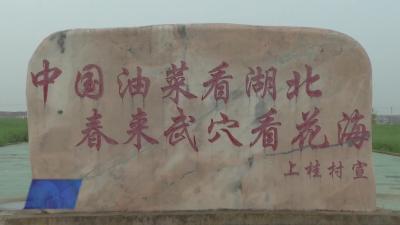 中国油菜看湖北
春来武穴看花海
上桂村宣